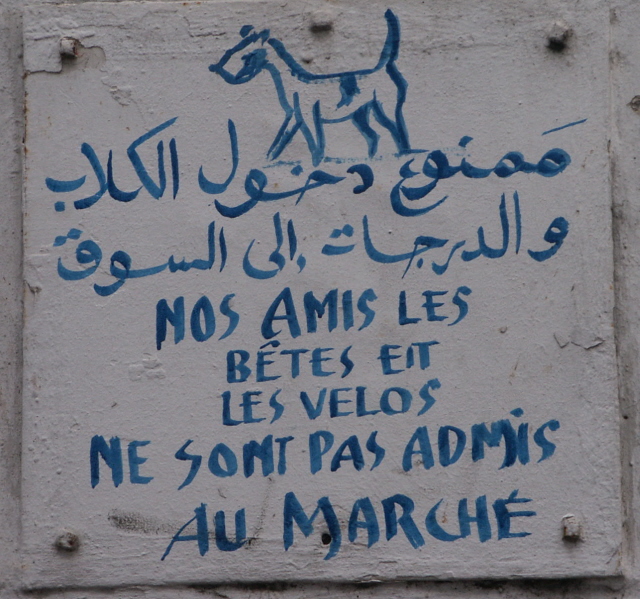 ممنوع دخول الكلاب
والدرجات إلى السوق
NOS AMIS LES
BÊTES EIT
LES VELOS
NE SONT PAS ADMIS
AU MARCHÉ